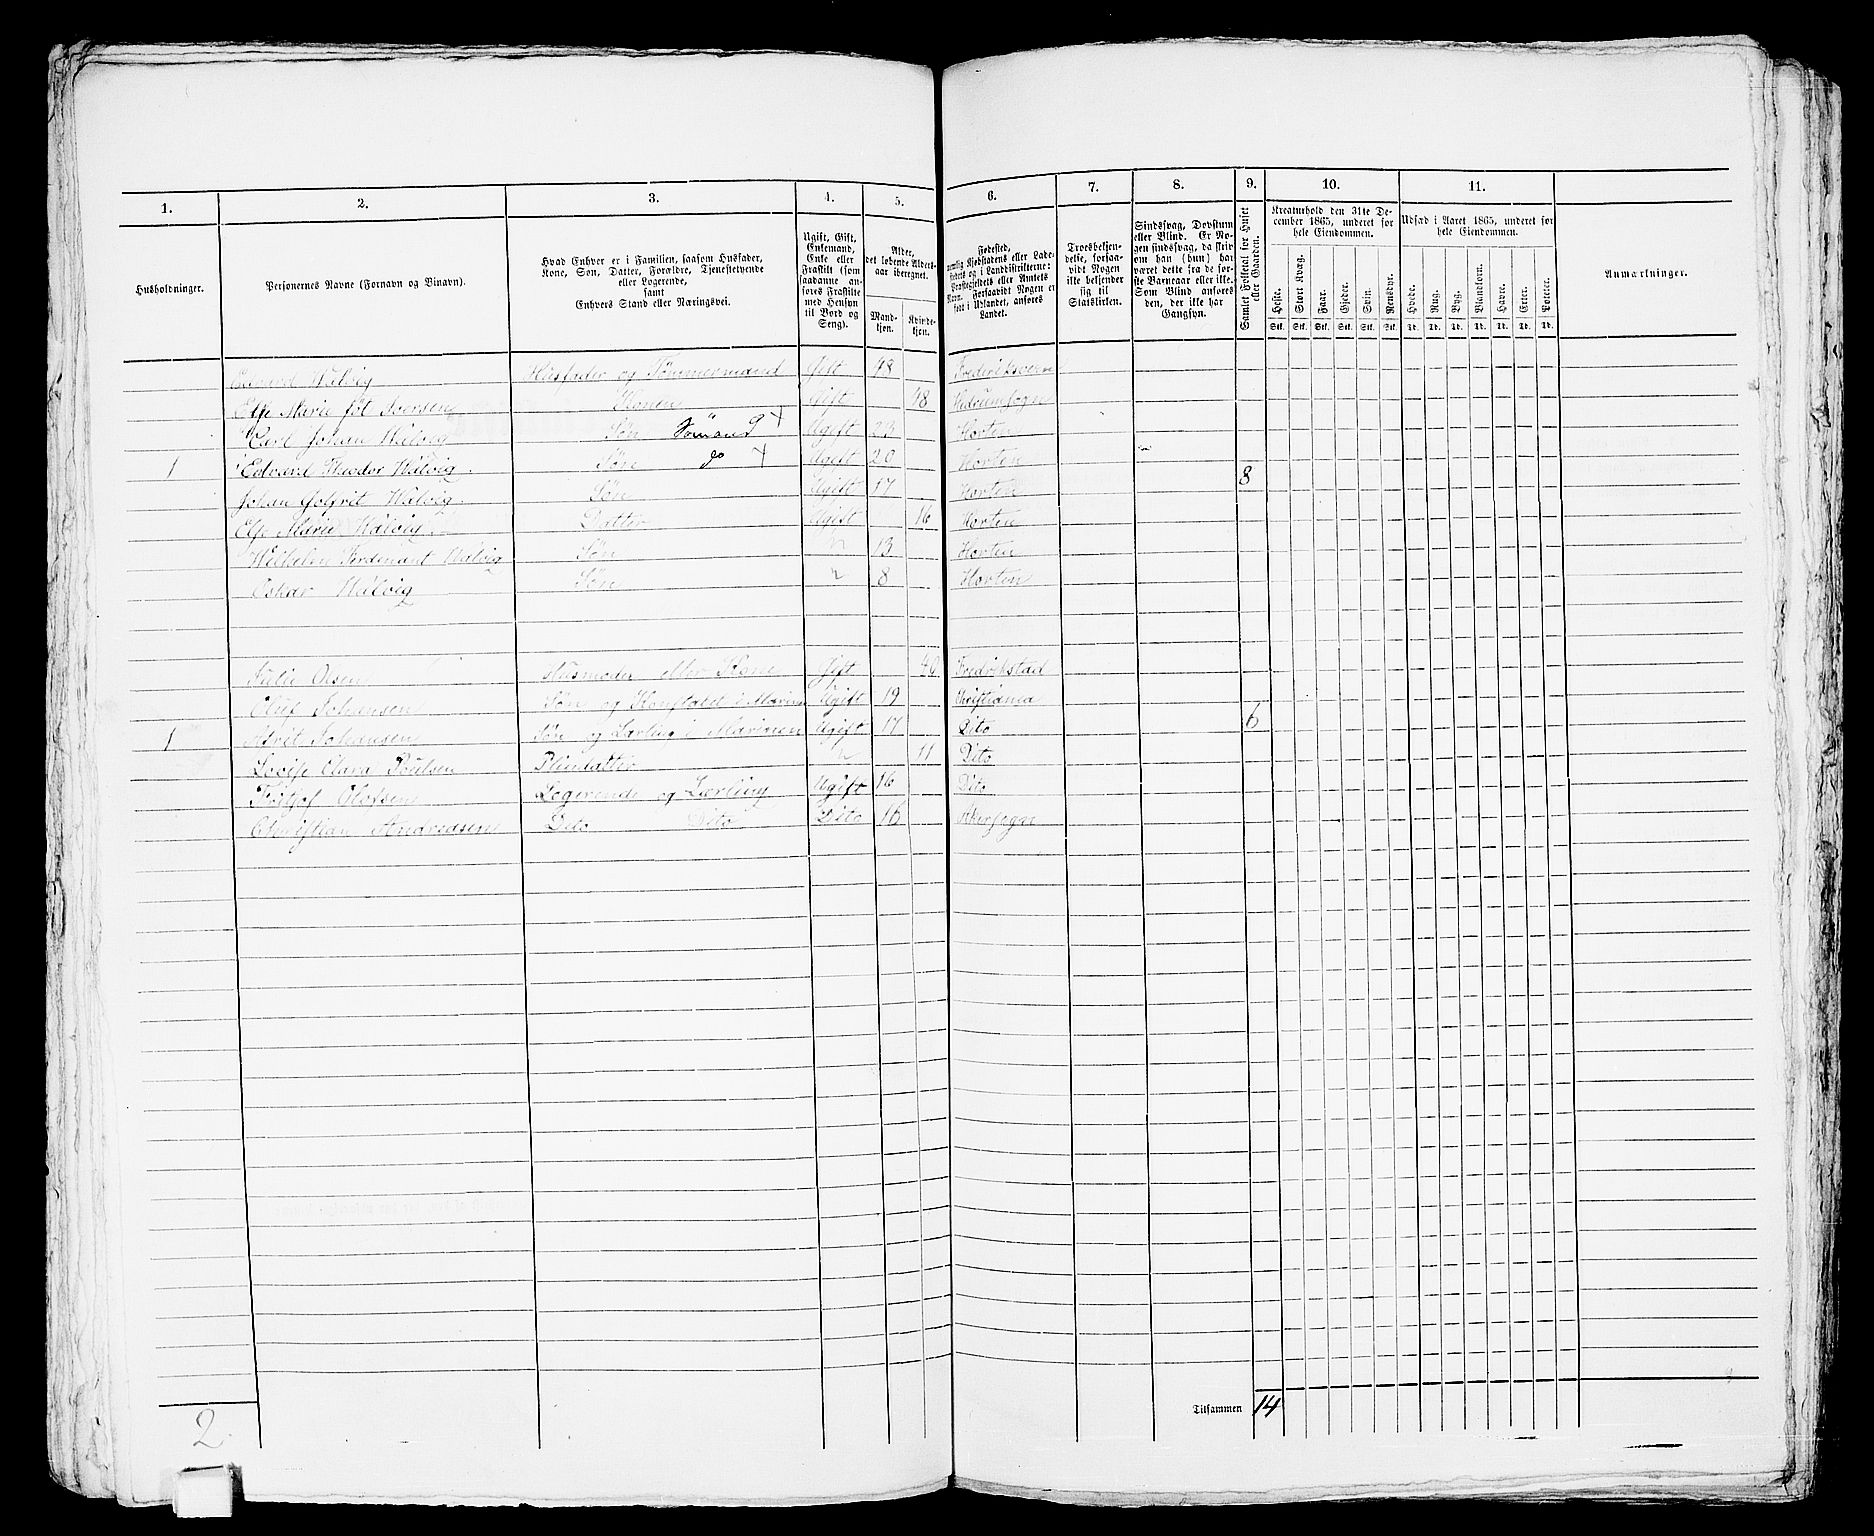 1. 2. 3. 4. 5. 6. 7. 8. 9. 10. 11.
Husholdninger.
Personernes Navne (Fornavn og Binavn).
Hvad Enhver er i Familien, saasom Husfader,
Kone, Søn, Datter, Forældre, Tjenestetyende
eller Logerende,
samt
Enhvers Stand eller Næringsvei.
Ugift, Gift,
Enkemand,
Enke eller
Fraskilt (som
saadanne an-
føres Fraskilte
med Hensyn
til Bord og
Seng).
Alder,
det løbende Alders-
aar iberegnet.
Mand-
kjøn.
Kvinde-
kjøn.
Fødested,
nemlig Kjøbstadens eller Lade-
stedets og i Landdistrikterne:
Præstegjeldets eller Amtets
Navn. Forsaavidt Nogen er
født i Udlandet, anføres
Landet.
Troesbekjen-
delse, forsaa-
vidt Nogen
ikke bekjender
sig til
Statskirken.
Sindssvag, Døvstum
eller Blind. Er No-
gen sindssvag, da skriv
om han (hun) har
været dette fra de før-
ste Barneaar eller ikke.
Som Blind anføres
den, der ikke har
Gangsyn.
Samlet Folketal for Huset
eller Gaarden.
Kreaturhold den 31te De-
cember 1865, underet for
hele Eiendommen.
Heste. Stort Kvæg. Faar. Gjeder. Svin. Rensdyr.
Stk. Stk. Stk. Stk. Stk. Stk.
Udsæd i Aaret 1865, underet for
hele Eiendommen.
Hvede. Rug. Byg. Blandkorn. Havre. Erter. Poteter.
Td. Td. Td. Td. Td. Td. Td.
Anmærkninger.
Edvard Halvig Husfader og Tømmermand Gift 48 Frederiksværn
Else Marie Iversen Konen Gift 48 Hedrumsogn
Carl Johan Halvig Søn Sømand Ugift 23 Horten
1 Edvard Theodor Halvig Søn do Ugift 20 Horten 8
Johan Halvig Søn Ugift 17 Horten
Else Marie Halvig Datter Ugift 16 Horten
Wilhelm Ferdenant Halvig Søn " 13 Horten
Oskar Halvig Søn " 8 Horten
Julie Olsen Husmoder Kone Gift 40 Fredrikstad
Oluf Johansen Søn og Ugift 19 Christiania
1 Johansen Søn og Lærling i Marinen Ugift 17 Dito 6
Lovise Clara Poulsen Pleiedatter " 11 Dito
Olofsen Logerende og Lærling Ugift 16 Dito
Christian Andreasen Dito Dito Dito 16 Akersogn
Tilsammen 14
2